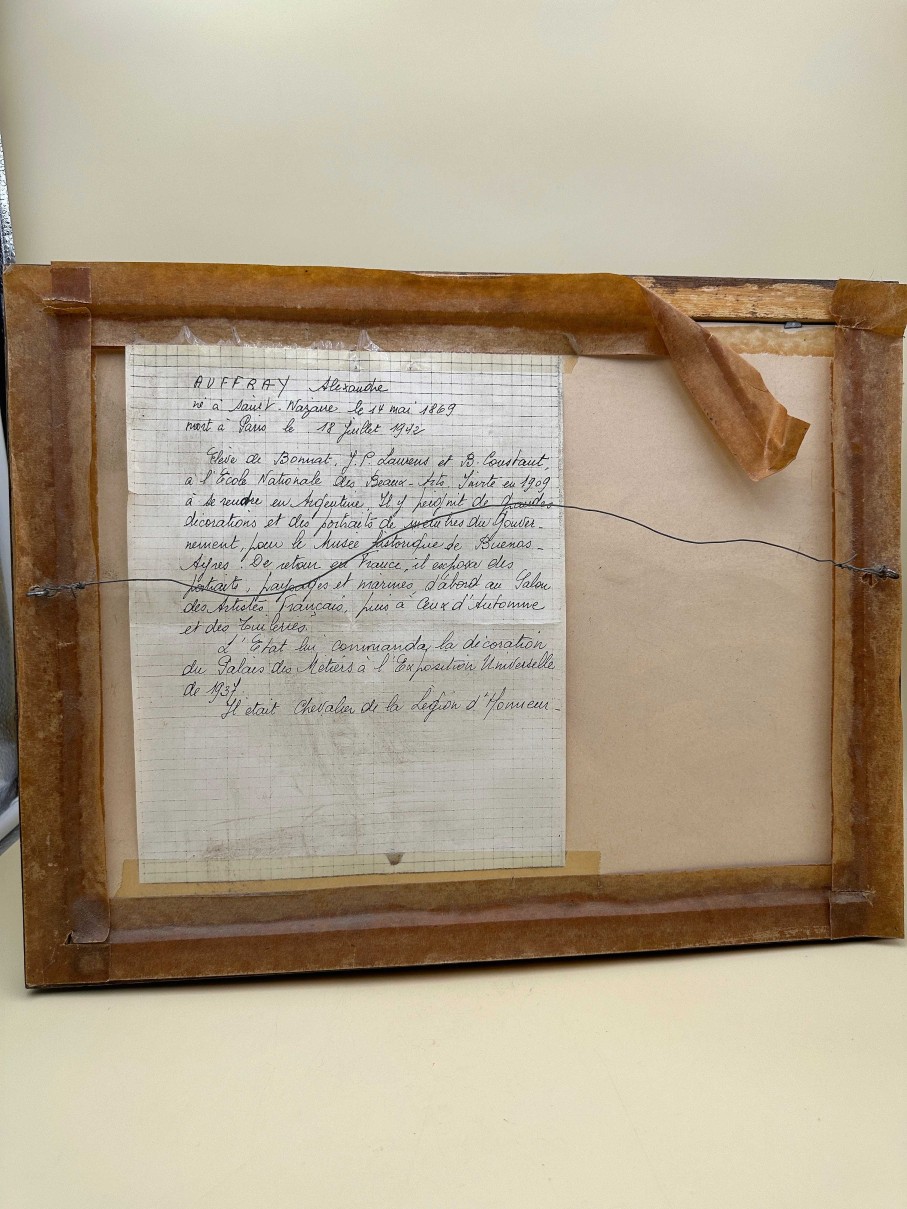 AUFFRAY Alexandre
né à Saint-Nazaire le 14 mai 1869
mort à Paris le 18 juillet 1942
Elève de Bonnat, J.P. Laurens et B. Constant,
à l'Ecole Nationale des Beaux-Arts. Invité en 1909
à se rendre en Argentine. Il y peignit de grandes
décorations et des portraits de membres du Gouver-
nement, pour le Musée historique de Buenos-
Ayres. De retour en France, il exposa des
portraits, paysages et marines, d'abord au Salon
des Artistes Français, puis à ceux d'Automne
et des Tuileries.
L'Etat lui commanda la décoration
du Palais des Métiers à l'Exposition Universelle
de 1937.
Il était Chevalier de la Légion d'Honneur-